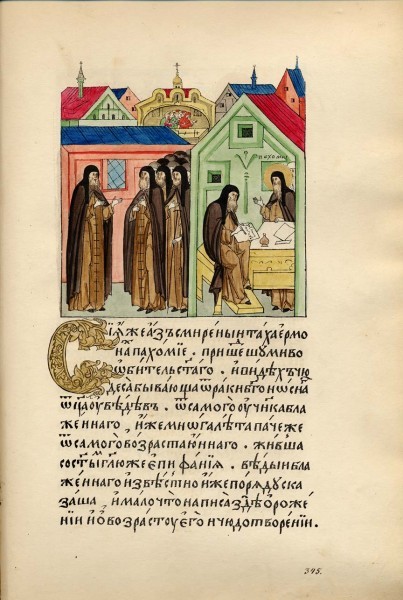 пахоми
Сіѧ же азъ смиреныи таха ермо
на пахоміе . прише шу ми во
ѡбитель стаго . и видѣхъ чю
деса бывающа ѿ раки бгоносна
ѿца оувѣдѣвъ . ѿ самого оученика бла
женнаго . иже многа лѣта паче же
ѿ самого возраста юннаго . живша
со стымъ глю же епифаніа . вѣды и бла
женнаго извѣстно иже порѧду ска
заша , и мало что написа здѣ о роже
ніи и о возрасто у его и чюдотвореніи .
345.